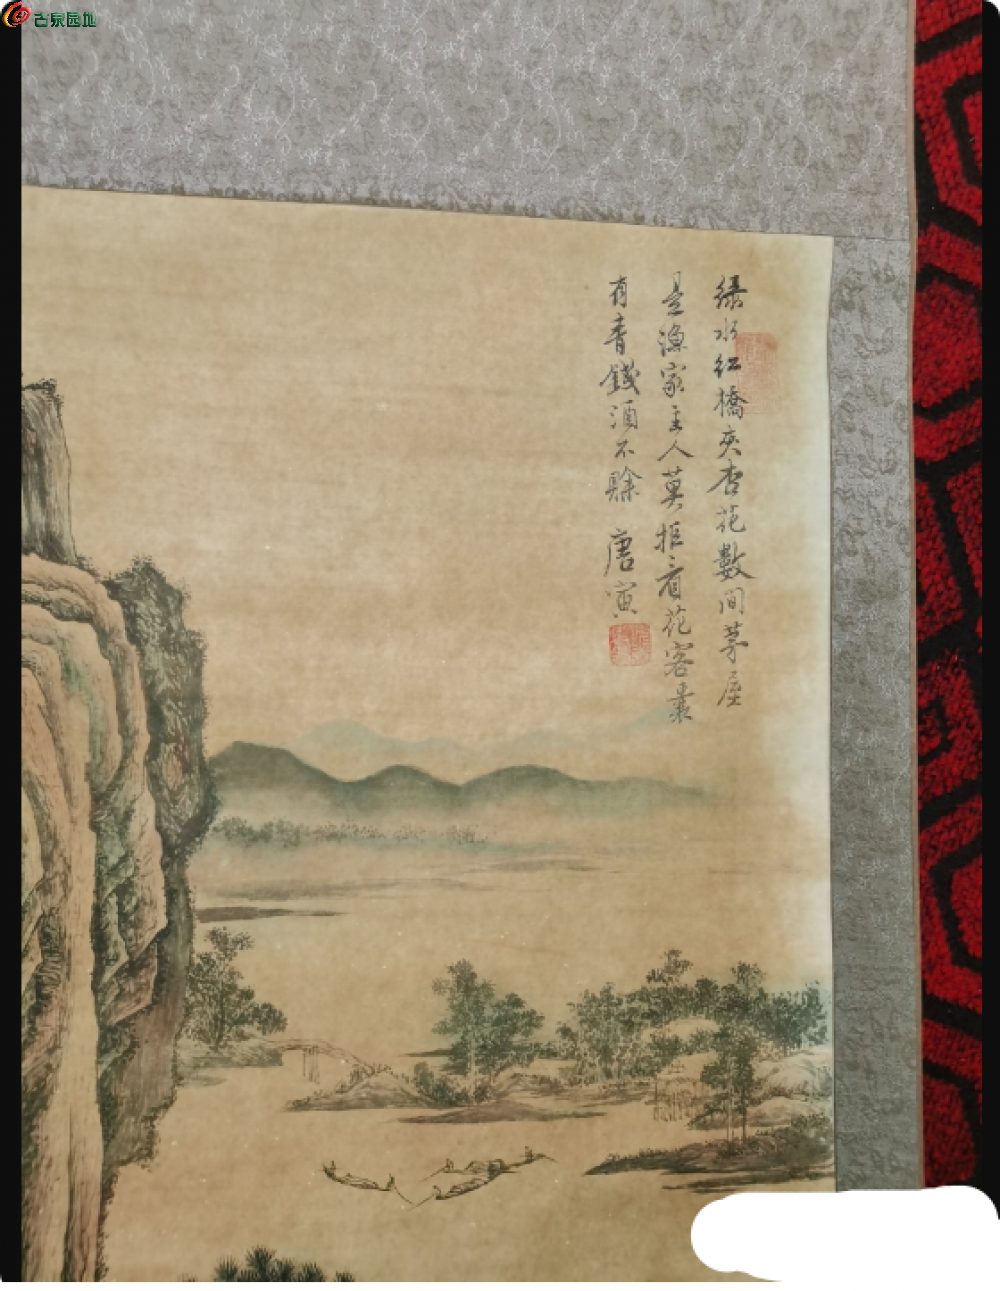 古泉园地
绿水红橋夾杏花數間茅屋
是漁家主人莫拒看花客囊
有青錢酒不賒 唐寅